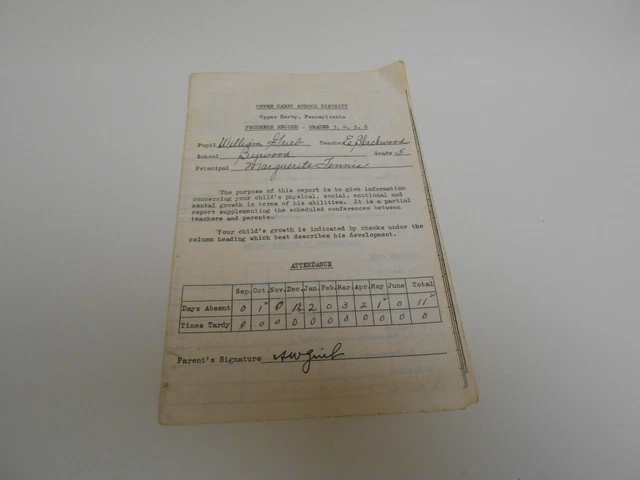 UPPER DARBY SCHOOL DISTRICT
Upper Darby, Pennsylvania
PROGRESS RECORD - GRADES 3, 4, 5, 6
Pupil William Teacher E. Blackwood
School Bywood Grade 5
Principal Marguerite Tennis
The purpose of this report is to give information
concerning your child's physical, social, emotional and
mental growth in terms of his abilities. It is a partial
report supplementing the scheduled conferences between
teachers and parents.
Your child's growth is indicated by checks under the
column heading which best describes his development.
ATTENDANCE
Sep. Oct. Nov. Dec. Jan. Feb. Mar. Apr. May June Total
Days Absent 0 1 0 1½ 2 0 3 2 1 0 11
Times Tardy 0 0 0 0 0 0 0 0 0 0 0
Parent's Signature